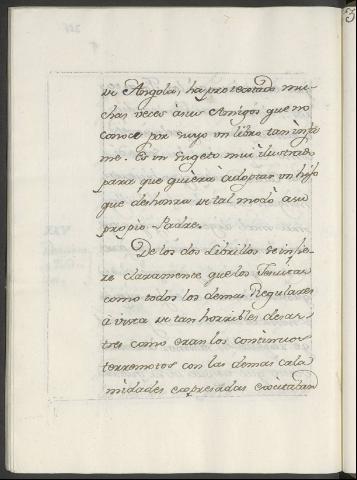 de Angola, ha protextado mu-
chas veces à sus Amigos que no
conoce por suyo un libro tan infa
me. Es un sugeto mui ilustrado
para que quiera adoptar un hijo
que deshonra de tal modo a su
propio Padre.
De los dos Librillos se infie-
re claramente que los Jesuitas
como todos los demas Regulares
à vista de tan horribles desas-
tres como eran los continuos
terremotos con las demas cala
midades expresadas excitaban